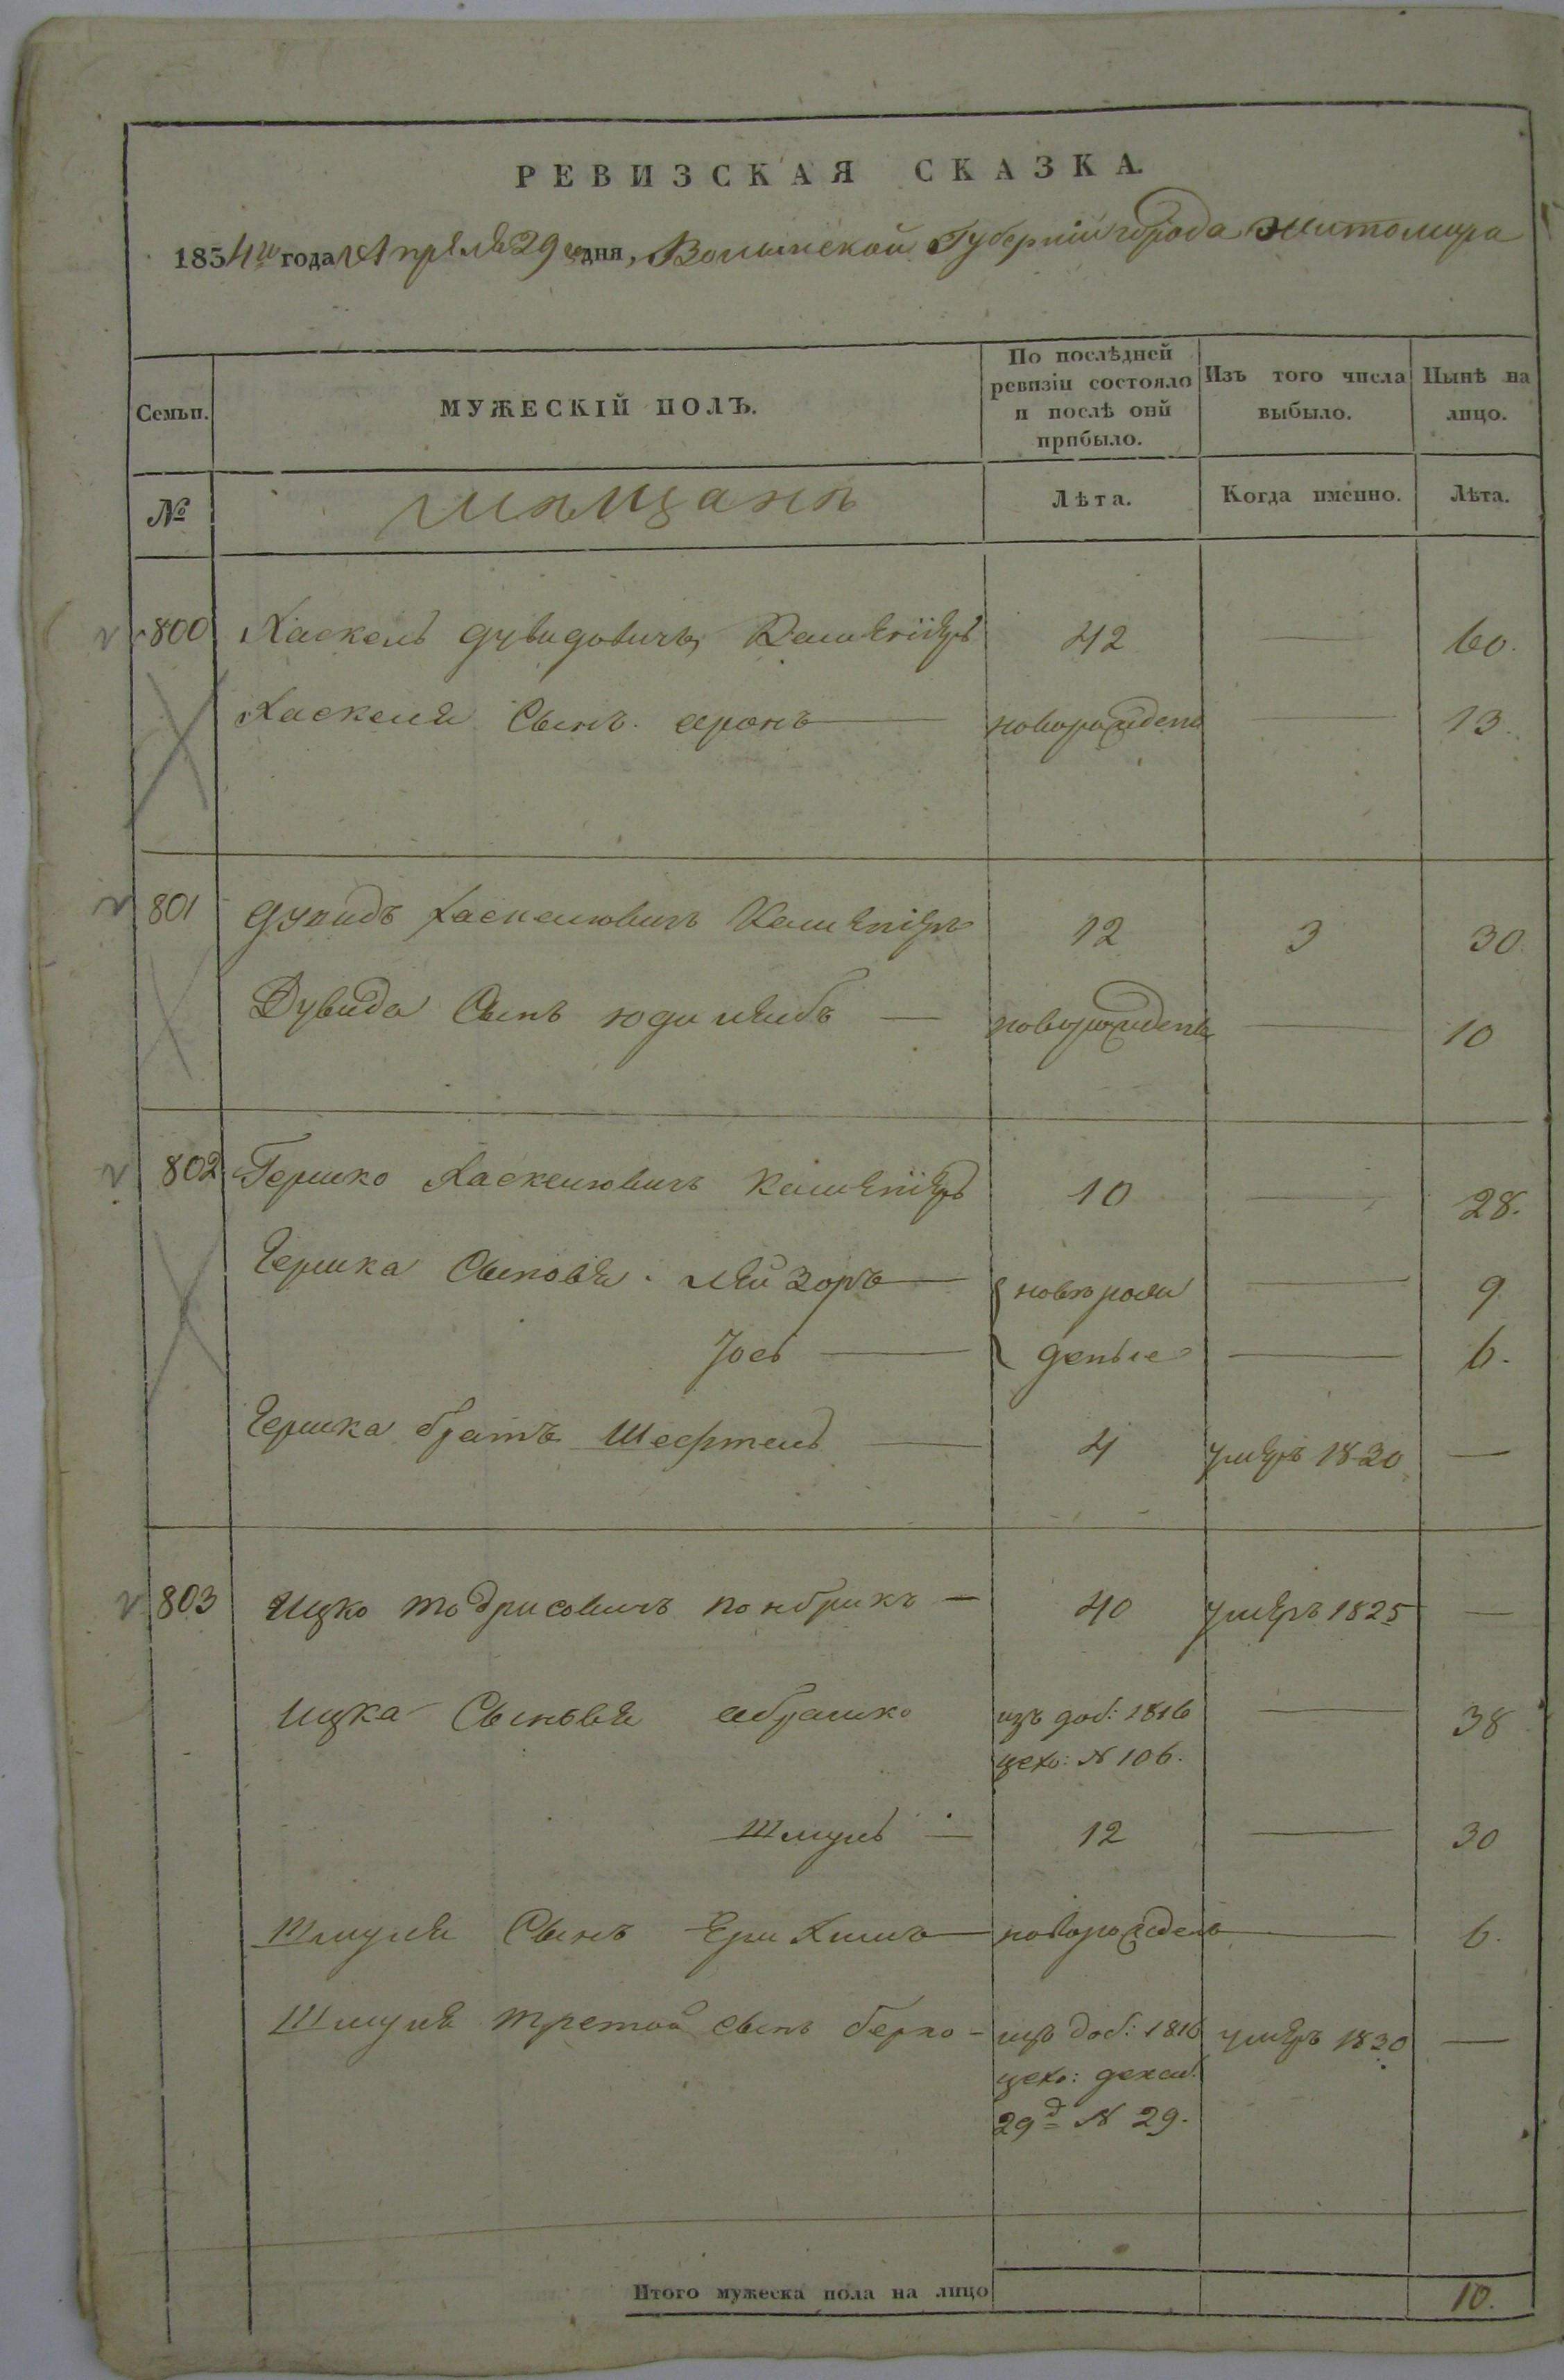 РЕВИЗСКАЯ СКАЗКА.
1834го года Апреля 29го дня, Волынской Губернии города Житомира
Семьи. МУЖЕСКІЙ ПОЛЪ. По послѣдней ревизіи состояло и послѣ оной прибыло. Изъ того числа выбыло. Нынѣ на лицо.
№ мѣщанѣ Лѣта. Когда именно. Лѣта.
800 Хаскель Дувидовичъ 42 — 60.
Хаскеля Сынъ аронъ — новорожденъ — 13.
801 Дувидъ Хаскелювичъ 12 3 30.
Дувида Сынъ юдилейбъ — новорожденъ — 10
802 Гершко Хаскелювичъ 10 — 28.
Гершка Сыновья лейзоръ — новорож — 9
Іось — деные — 6.
Гершка братъ Шефтель — 4 умеръ 1830 —
803 Ицко тодрисовичъ — 40 умеръ 1825 —
Ицка Сыновья абрамко изъ доб: 1816 — 38
цехо: N 106.
Шмуль — 12 — 30
Шмуля Сынъ — новорожденъ — 6.
Шмуля третой сынъ берко - изъ доб: 1816 умеръ 1830 —
цехо: декаб:
29д N 29.
Итого мужеска пола на лицо 10.